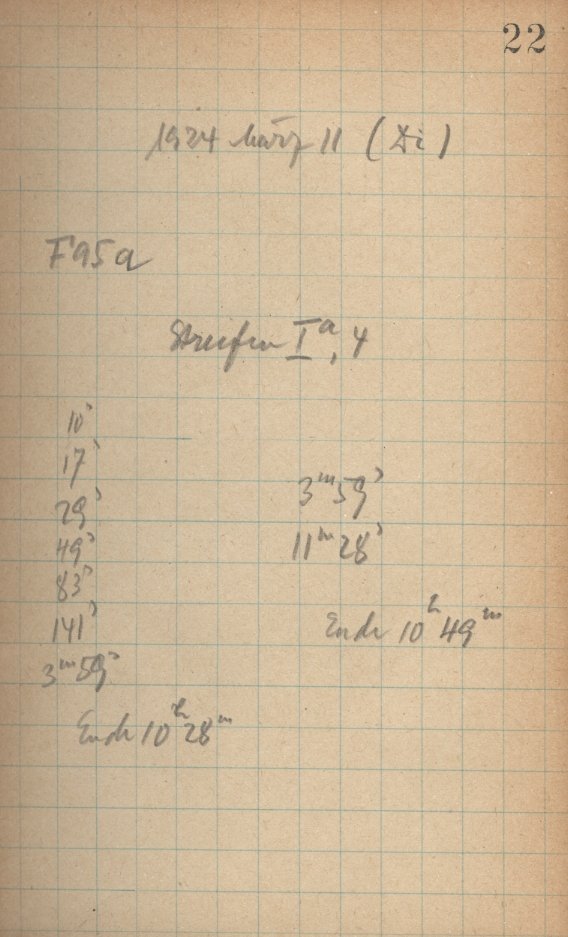 22
1924 März 11 (Di)
F95a
Streifen Iᵃ, 4
10ˢ
17ˢ
29ˢ
49ˢ
83ˢ
141ˢ
3ᵐ59ˢ
Ende 10ʰ28ᵐ
3ᵐ59ˢ
11ᵐ28ˢ
Ende 10ʰ49ᵐ